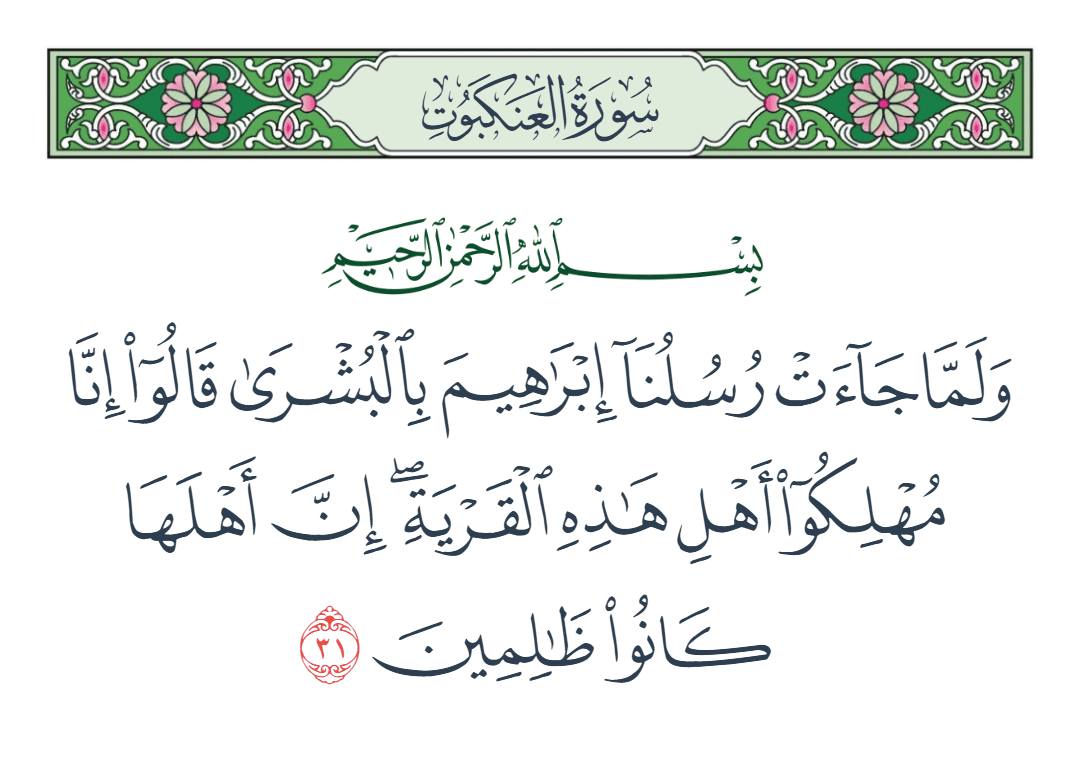 سُورَةُ العَنكَبُوتِ
بِسْمِ ٱللَّهِ ٱلرَّحْمَٰنِ ٱلرَّحِيمِ
وَلَمَّا جَآءَتْ رُسُلُنَآ إِبْرَٰهِيمَ بِٱلْبُشْرَىٰ قَالُوٓا۟ إِنَّا
مُهْلِكُوٓا۟ أَهْلِ هَٰذِهِ ٱلْقَرْيَةِ ۖ إِنَّ أَهْلَهَا
كَانُوا۟ ظَٰلِمِينَ ٣١